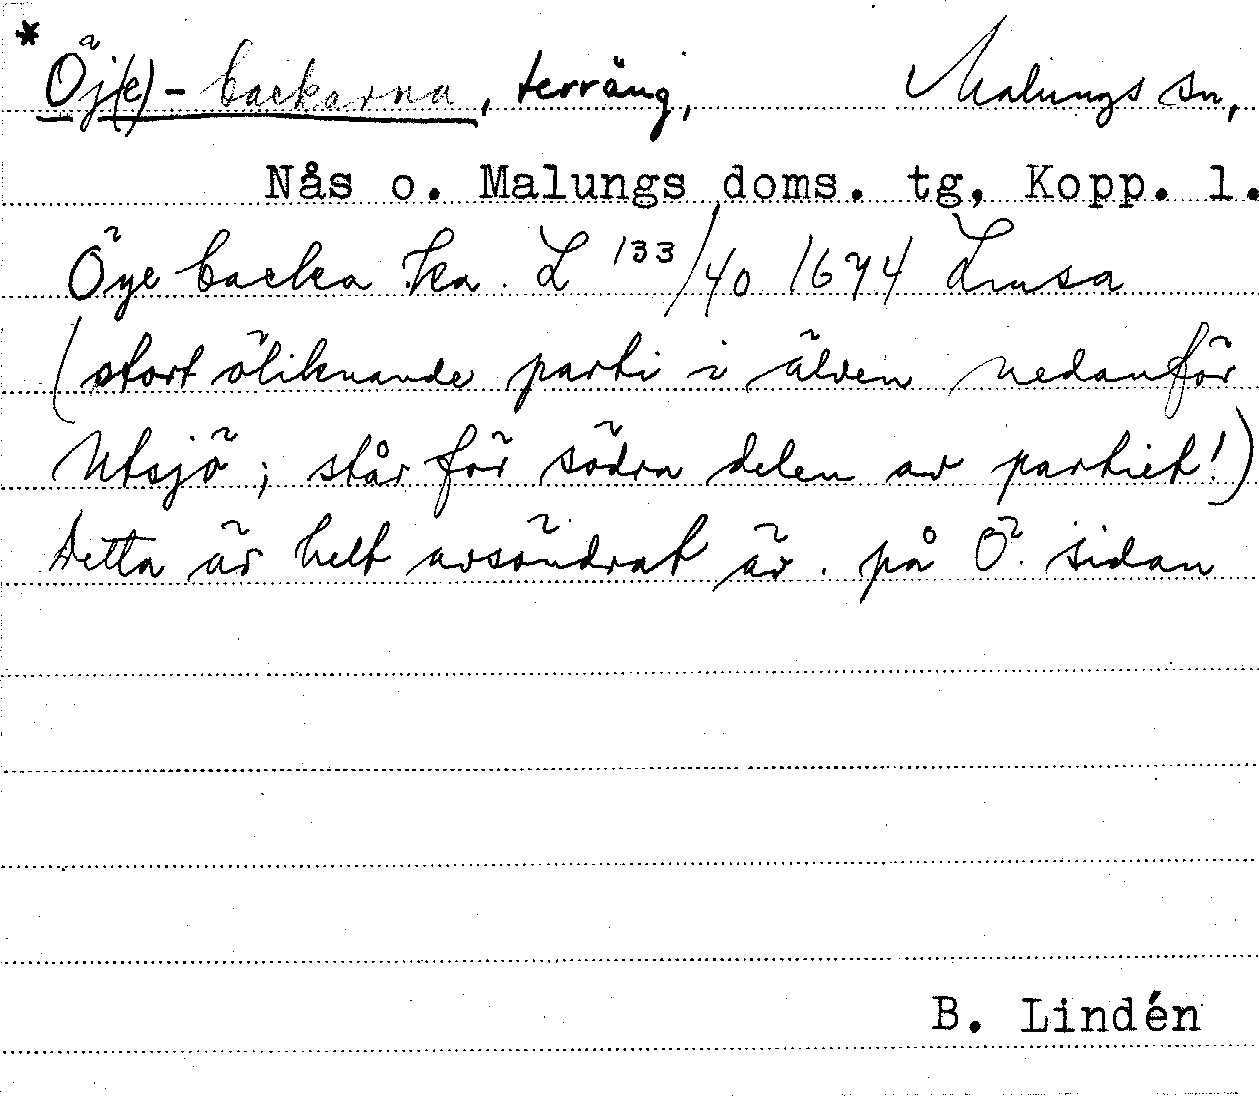 * Öj(e)-backarna, terräng, Malungs sn,
Nås o. Malungs doms. tg, Kopp. l.
Öye backa ka. L 133/40 1674 Limsa
(stort öliknande parti i älven nedanför
Utsjö; står för södra delen av partiet!)
Detta är helt avsöndrat äv. på Ö. sidan
B. Lindén